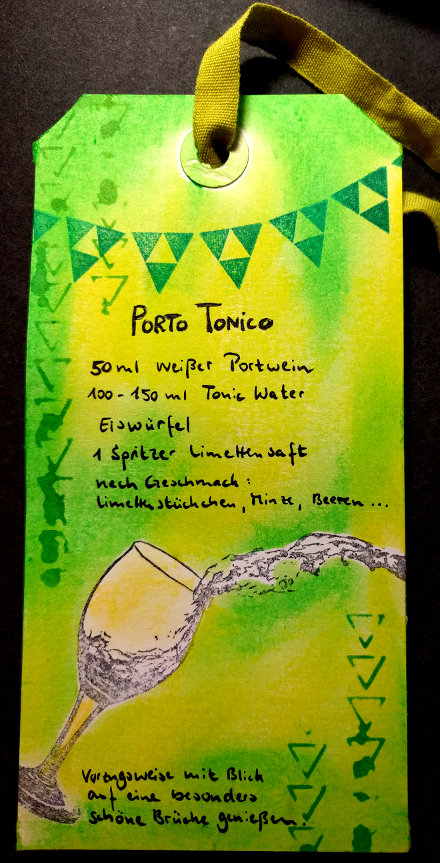 PORTO TONICO
50 ml weißer Portwein
100-150 ml Tonic Water
Eiswürfel
1 Spritzer Limettensaft
nach Geschmack:
Limettenstückchen, Minze, Beeren ...
Vorzugsweise mit Blick
auf eine besonders
schöne Brücke genießen!